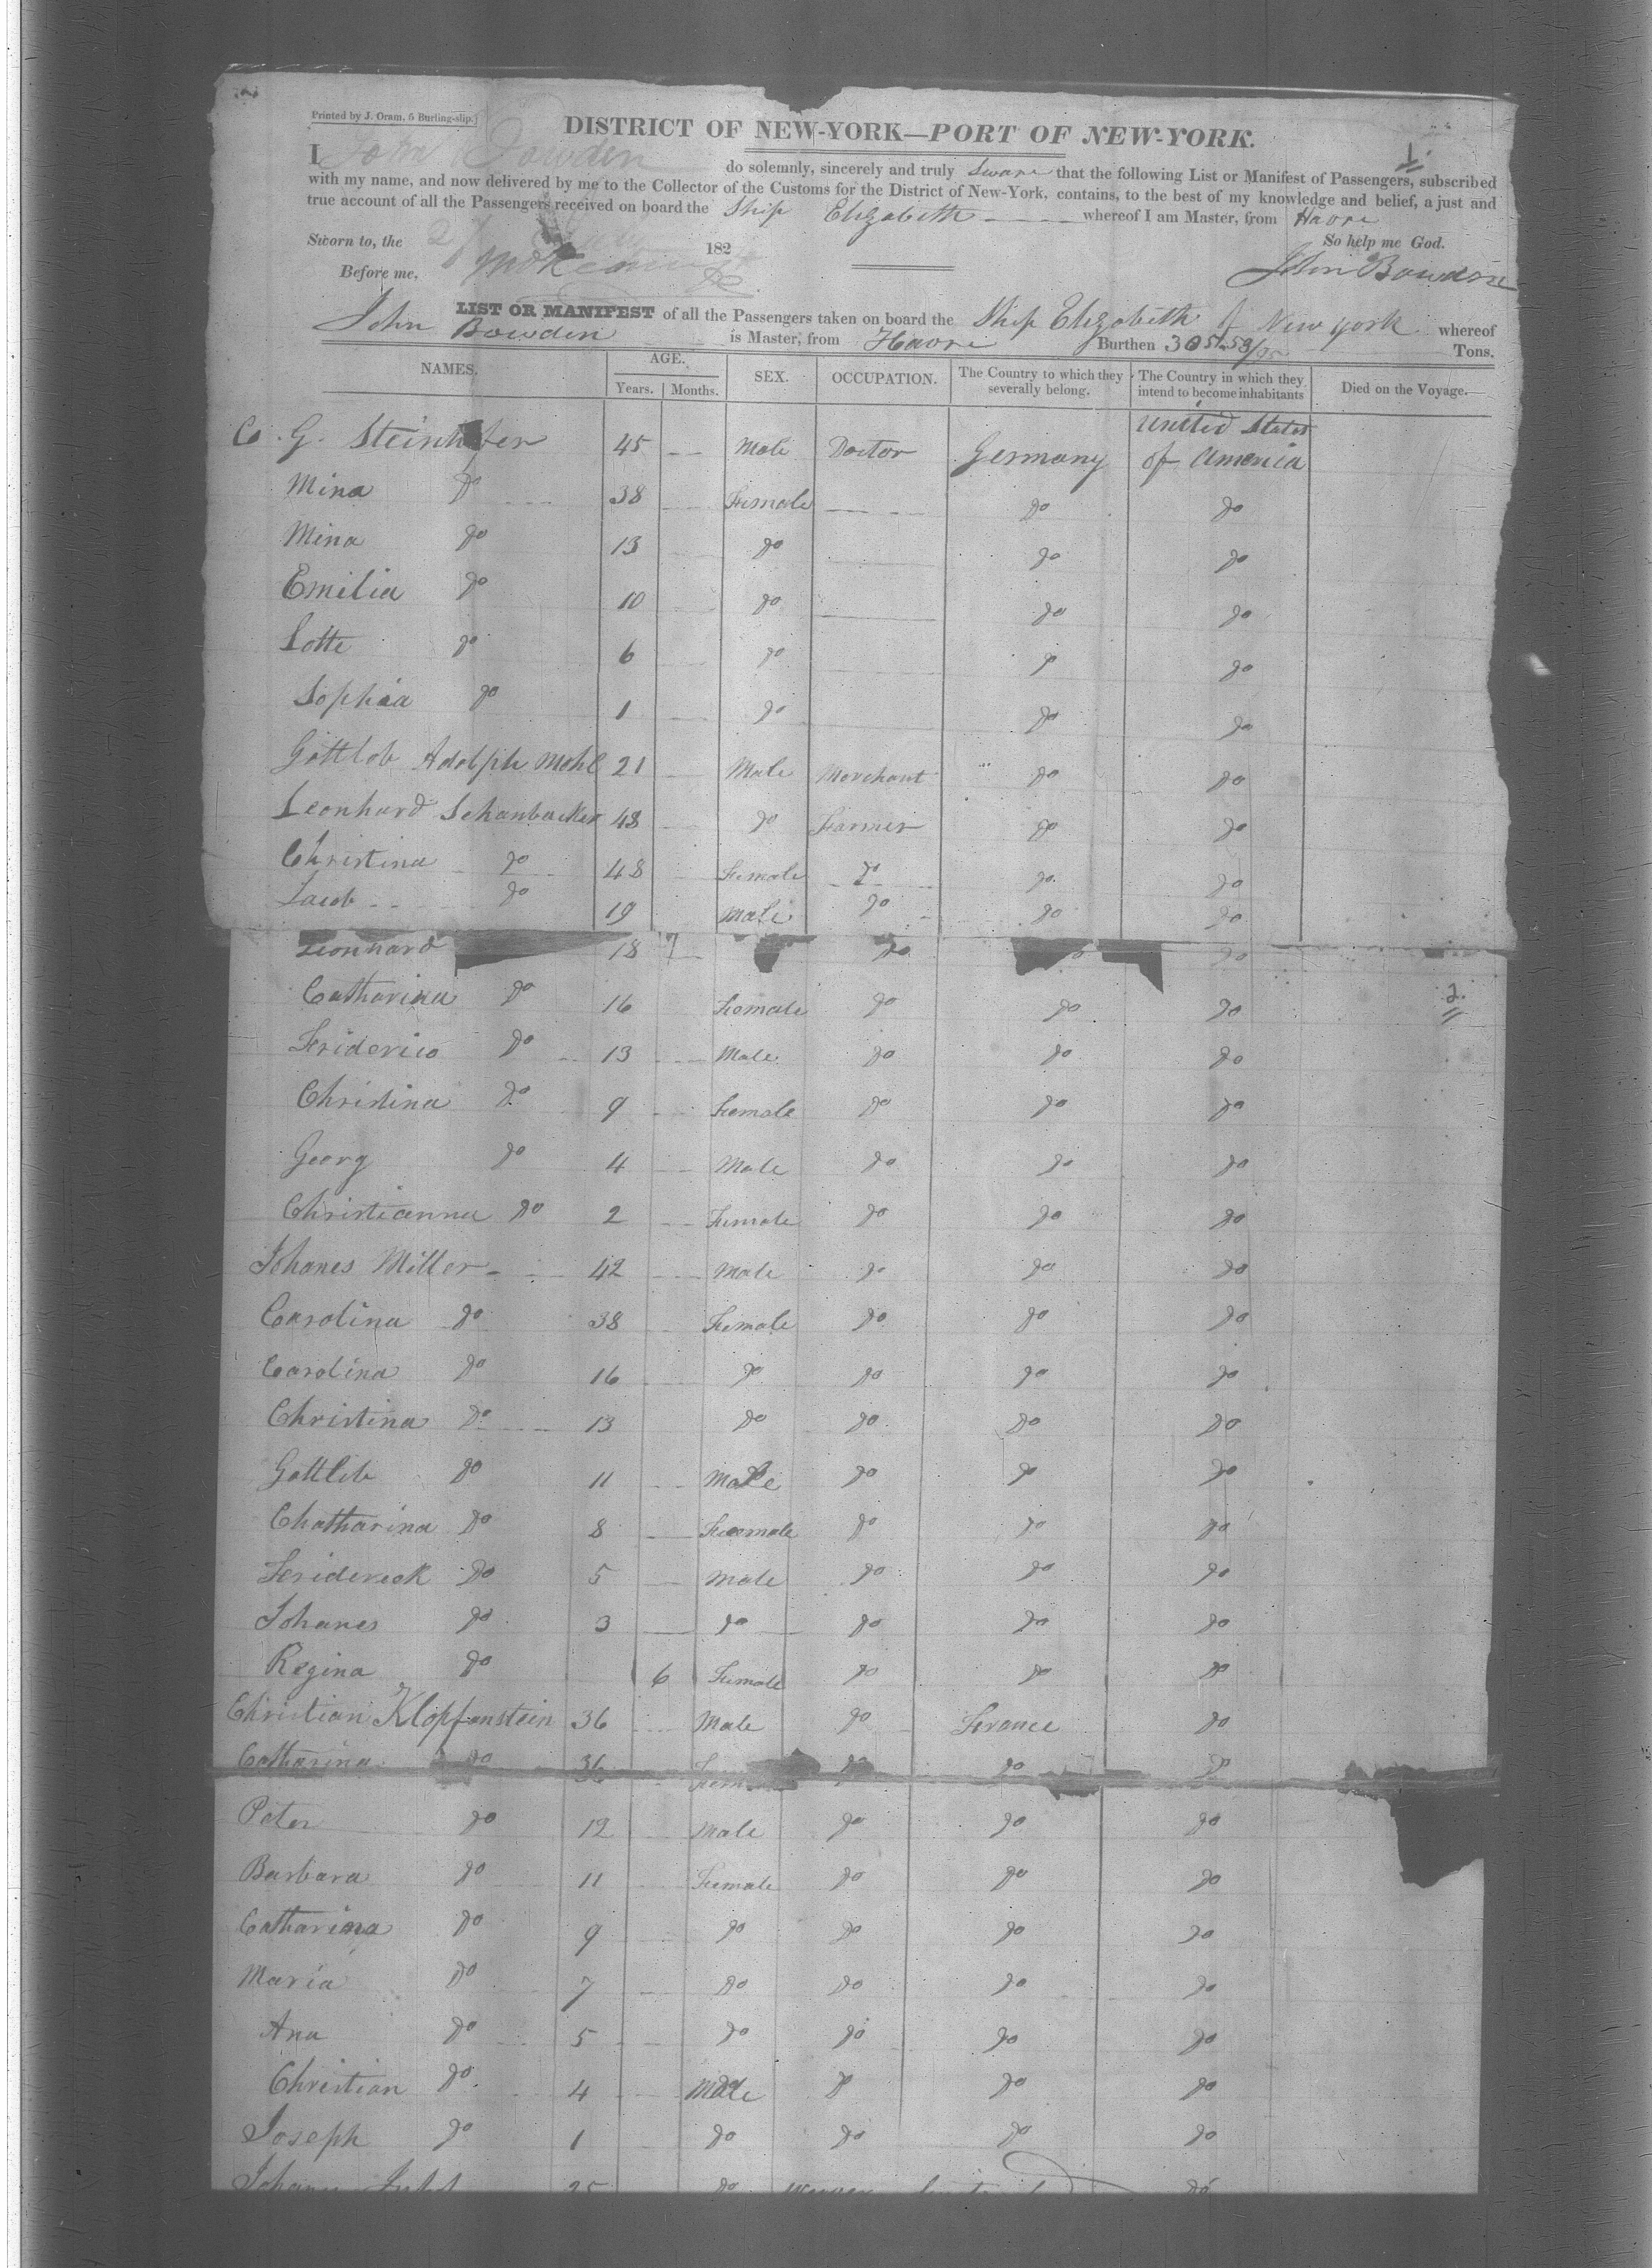 Printed by J. Oram, 6 Burling-slip.
DISTRICT OF NEW-YORK—PORT OF NEW-YORK.
1.
I John Bowden do solemnly, sincerely and truly Swear that the following List or Manifest of Passengers, subscribed
with my name, and now delivered by me to the Collector of the Customs for the District of New-York, contains, to the best of my knowledge and belief, a just and
true account of all the Passengers received on board the Ship Elizabeth whereof I am Master, from Havre
Sworn to, the 27 182 So help me God.
Before me, John Bowden
LIST OR MANIFEST of all the Passengers taken on board the Ship Elizabeth of New York whereof
John Bowden is Master, from Havre Burthen 305 58/95 Tons.
NAMES. AGE. SEX. OCCUPATION. The Country to which they severally belong. The Country in which they intend to become inhabitants Died on the Voyage.
Years. Months.
United States
C. G. Steinhofer 45 Male Doctor Germany of America
Mina Do 38 Female Do Do
Mina Do 13 Do Do Do
Emilia Do 10 Do Do Do
Lotte Do 6 Do Do Do
Sophia Do 1 Do Do Do
Gottlob Adolph Mohl 21 Male Merchant Do Do
Leonhard Schanbacker 48 Do Farmer Do Do
Christina Do 48 Female Do Do Do
Jacob Do 19 Male Do Do Do
Leonhard 18 Do Do Do
Catharina Do 16 Female Do Do Do
2.
Friderico Do 13 Male Do Do Do
Christina Do 9 Female Do Do Do
Georg Do 4 Male Do Do Do
Christianna Do 2 Female Do Do Do
Johanes Miller 42 Male Do Do Do
Carolina Do 38 Female Do Do Do
Carolina Do 16 Do Do Do Do
Christina Do 13 Do Do Do Do
Gottlib Do 11 Male Do Do Do
Chatharina Do 8 Female Do Do Do
Fridereck Do 5 Male Do Do Do
Johanes Do 3 Do Do Do Do
Regina Do 6 Female Do Do Do
Christian Klopfenstein 36 Male Do France Do
Catharina Do 36 Do Do Do
Peter Do 12 Male Do Do Do
Barbara Do 11 Female Do Do Do
Catharina Do 9 Do Do Do Do
Maria Do 7 Do Do Do Do
Ana Do 5 Do Do Do Do
Christian Do 4 Male Do Do Do
Joseph Do 1 Do Do Do Do
Johann 25 Do Do